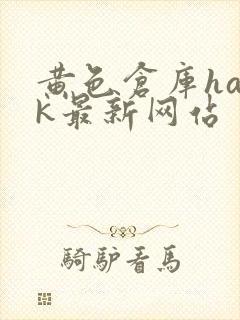 黄色倉庫ha
k最新网站
騎驢看馬